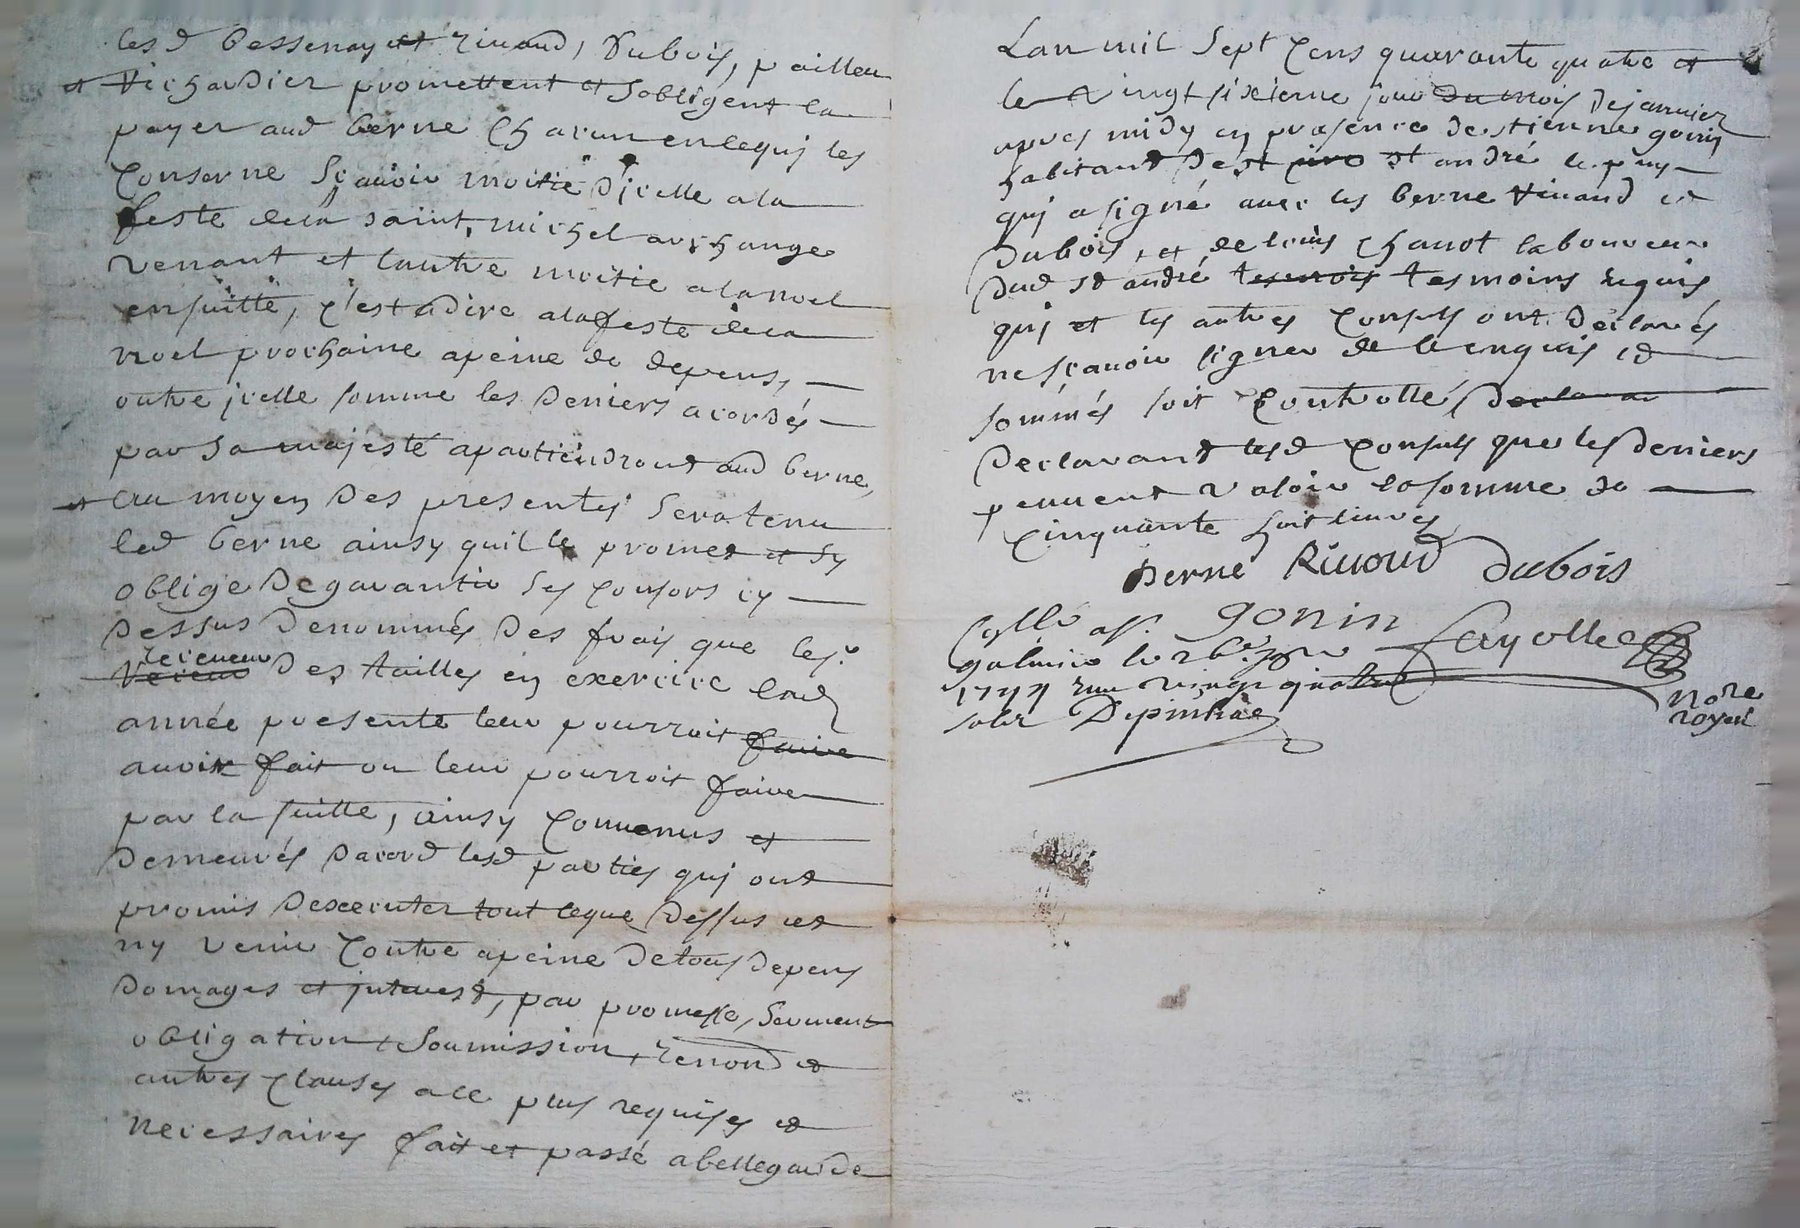 lesd bessenay et rivaud, Dubois, pailleu
et Richardier promettent et sobligent la
payer aud berne Chacun en lequj les
Conserne Scavoir moitie djcelle a la
feste de la saint, michel archange
venant et lautre moitie a la noel
ensuitte, C'est adire a la feste de la
noel prochaine apeine de depens,
outre jcelle somme les deniers acordés
par Sa majesté apartiendront aud berne,
et au moyen des presentes Sera tenu
led berne ainsy quil le promet et Sy
oblige de garantir Ses Consors cy
dessus denommés des frais que les.r
receveur
des tailles en exercice lad
année presente leur pourroit faire
avoir fait ou leur pourroit faire
par la suitte, ainsy Convenus et
demeurés dacord lesd parties quj ont
promis dexecuter tout leque dessus et
ny venir Contre apeine de tous depens
domages et jnterest, par promesse, Serment
obligation, Soumission, renond et
autres Clauses ace plus requises et
necessaires fait et passé abellegarde
Lan mil Sept Cens quarante quatre et
le Vingt sixieme jour du mois de janvier
apres midy en presence destienne gonin
habitant de st andré le puy
quj a signé avec les berne Rivaud et
dubois, et de louis Chanot laboureur
dud st andré tesmoins requis
quj et les autres Consuls ont declarés
ne scavoir signer de ce enquis et
sommés soit Controllé, declarant
declarant lesd Consuls que les deniers
peuvent valoir la somme de
Cinquante huit livres
Berne Rivoud Dubois
gonin
fayolle
1744
vingt quatre
nore
royal